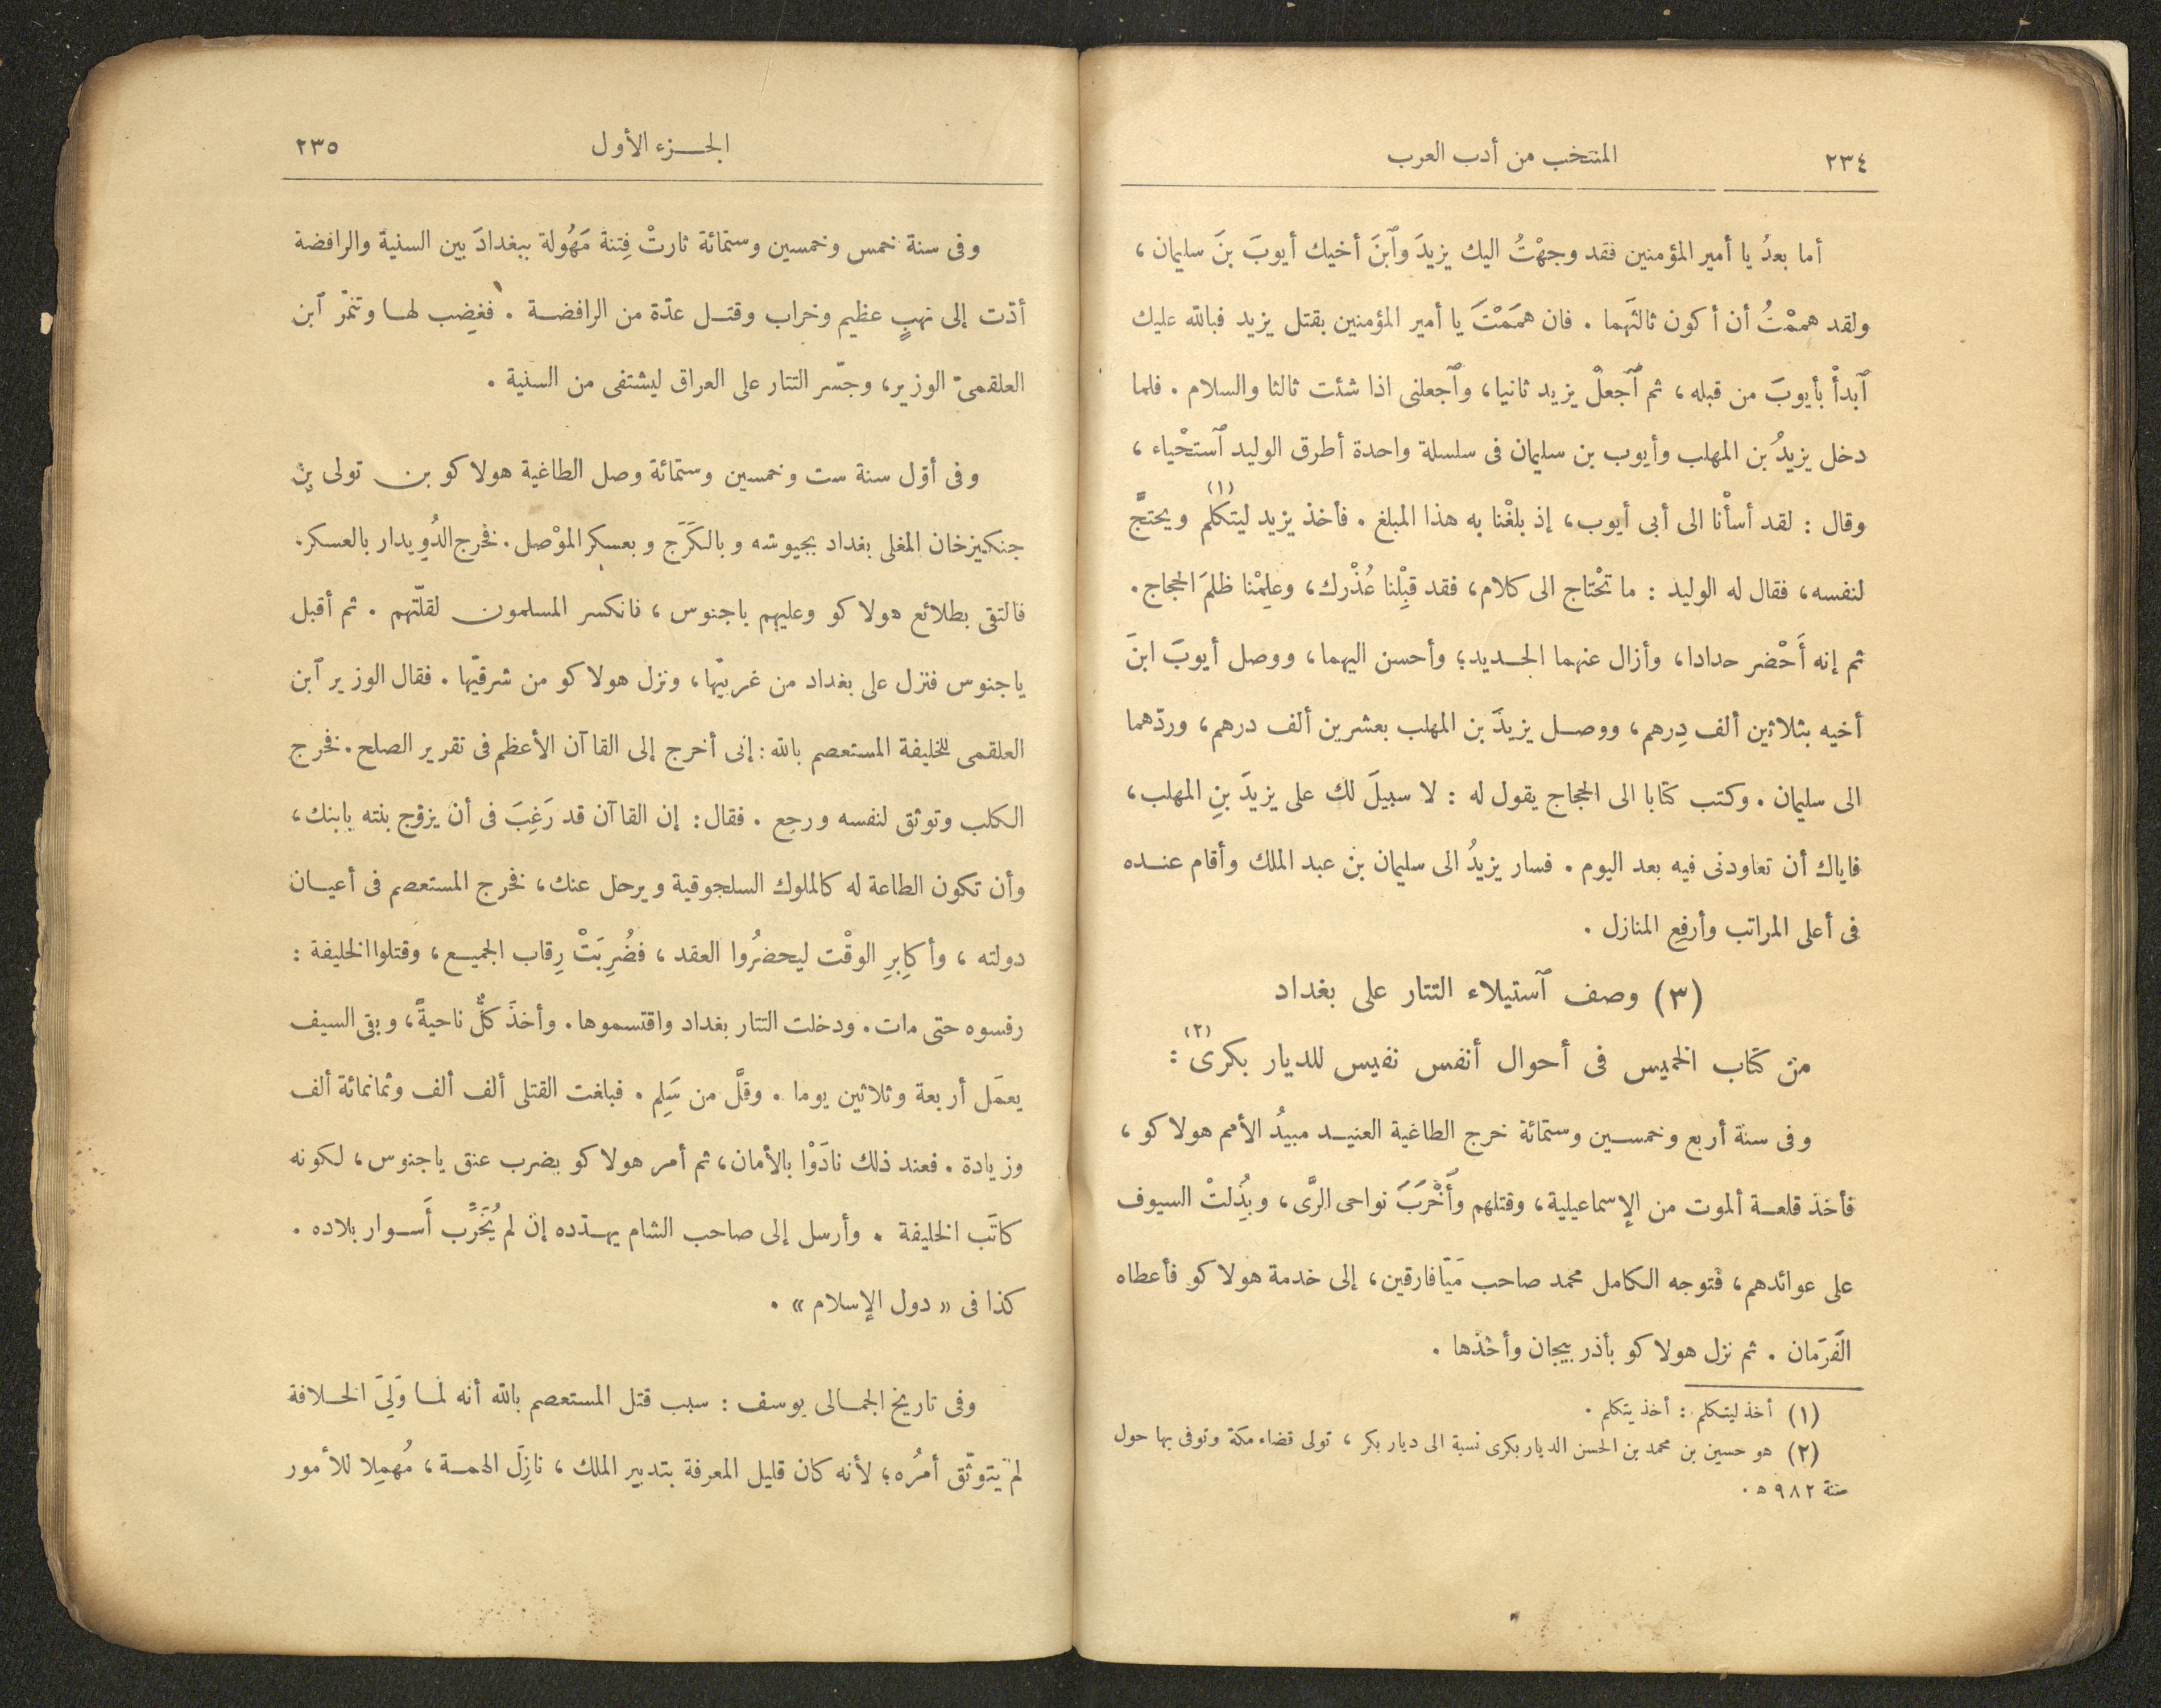 ٢٣٤
المنتخب من أدب العرب
أما بعدُ يا أمير المؤمنين فقد وجهْتُ اليك يزيدَ وٱبنَ أخيك أيوبَ بنَ سليمان ،
ولقد هممْتُ أن أكون ثالثَهما . فان هممَمْتَ يا أمير المؤمنين بقتل يزيد فبالله عليك
ٱبدأْ بأيوبَ من قبله ، ثم ٱجعلْ يزيد ثانيا ، وٱجعلنى اذا شئت ثالثا والسلام . فلما
دخل يزيدُ بن المهلب وأيوب بن سليمان فى سلسلة واحدة أطرق الوليد ٱستحْياء ،
وقال : لقد أسأْنا الى أبى أيوب ، إذ بلغْنا به هذا المبلغ . فأخذ يزيد ليتكلم (١) ويحتجَّ
لنفسه ، فقال له الوليد : ما تحْتاج الى كلام ، فقد قبِلْنا عُذْرك ، وعلِمْنا ظلمَ الحجاج .
ثم إنه أَحْضر حدادا ، وأزال عنهما الحديد ؛ وأحسن اليهما ، ووصل أيوبَ ابنَ
أخيه بثلاثين ألف دِرهم ، ووصل يزيدَ بن المهلب بعشرين ألف درهم ، وردّهما
الى سليمان . وكتب كتابا الى الحجاج يقول له : لا سبيلَ لك على يزيدَ بنِ المهلب ،
فاياك أن تعاودنى فيه بعد اليوم . فسار يزيدُ الى سليمان بن عبد الملك وأقام عنده
فى أعلى المراتب وأرفع المنازل .
(٣) وصف ٱستيلاء التتار على بغداد
من كتاب الخميس فى أحوال أنفس نفيس للديار بكرى (٢) :
وفى سنة أربع وخمسين وستمائة خرج الطاغية العنيد مبيدُ الأمم هولاكو ،
فأخذ قلعة ألموت من الإسماعيلية ، وقتلهم وأَخْرَبَ نواحى الرَّى ، وبُذِلتْ السيوف
على عوائدهم ، فتوجه الكامل محمد صاحب مَيّافارقين ، إلى خدمة هولاكو فأعطاه
الَفَرَمان . ثم نزل هولاكو بأذربيجان وأخذها .
(١) أخذ ليتكلم : أخذ يتكلم .
(٢) هو حسين بن محمد بن الحسن الديار بكرى نسبة الى ديار بكر ، تولى قضاء مكة وتوفى بها حول
سنة ٩٨٢ ه .
الجزء الأول
٢٣٥
وفى سنة خمس وخمسين وستمائة ثارتْ فِتنة مَهُولة ببغدادَ بين السنية والرافضة
أدّت إلى نهبٍ عظيم وخراب وقتل عدّة من الرافضة . فغضِب لها وتنمّر ٱبن
العلقمىّ الوزير ، وجسّر التتار على العراق ليشتفى من السنية .
وفى أوّل سنة ست وخمسين وستمائة وصل الطاغية هولاكو بن تولى بن
جنكيزخان المغلى بغداد بجيوشه وبالكَرَج وبعسكر الموْصل . فخرج الدُويدار بالعسكر .
فالتقى بطلائع هولاكو وعليهم باجنوس ، فانكسر المسلمون لقلّتهم . ثم أقبل
ياجنوس فنزل على بغداد من غربيّها ، ونزل هولاكو من شرقيّها . فقال الوزير ٱبن
العلقمى للخليفة المستعصم بالله : إنى أخرج إلى القاآن الأعظم فى تقرير الصلح . فخرج
الكلب وتوثق لنفسه ورجع . فقال : إن القاآن قد رَغِبَ فى أن يزوّج بنته بابنك ،
وأن تكون الطاعة له كالملوك السلجوقية ويرحل عنك ، فخرج المستعصم فى أعيان
دولته ، وأكابِرِ الوقْت ليحضُروا العقد ، فضُرِبَتْ رِقاب الجميع ، وقتلوا الخليفة :
رفسوه حتى مات . ودخلت التتار بغداد واقتسموها . وأخذَ كلٌّ ناحيةً ، وبقى السيف
يعمَل أربعة وثلاثين يوما . وقلَّ من سَلِم . فبلغت القتلى ألف ألف وثمانمائة ألف
وزيادة . فعند ذلك نادَوْا بالأمان ، ثم أمر هولاكو بضرب عنق ياجنوس ، لكونه
كاتَب الخليفة . وأرسل إلى صاحب الشام يهدّده إن لم يُخَرِّب أَسوار بلاده .
كذا فى « دول الإسلام » .
وفى تاريخ الجمالى يوسف : سبب قتل المستعصم بالله أنه لما وَلِىَ الخلافة
لم يتوثّق أمرُه ؛ لأنه كان قليل المعرفة بتدبير الملك ، نازِلَ الهمة ، مُهمِلا للأمور